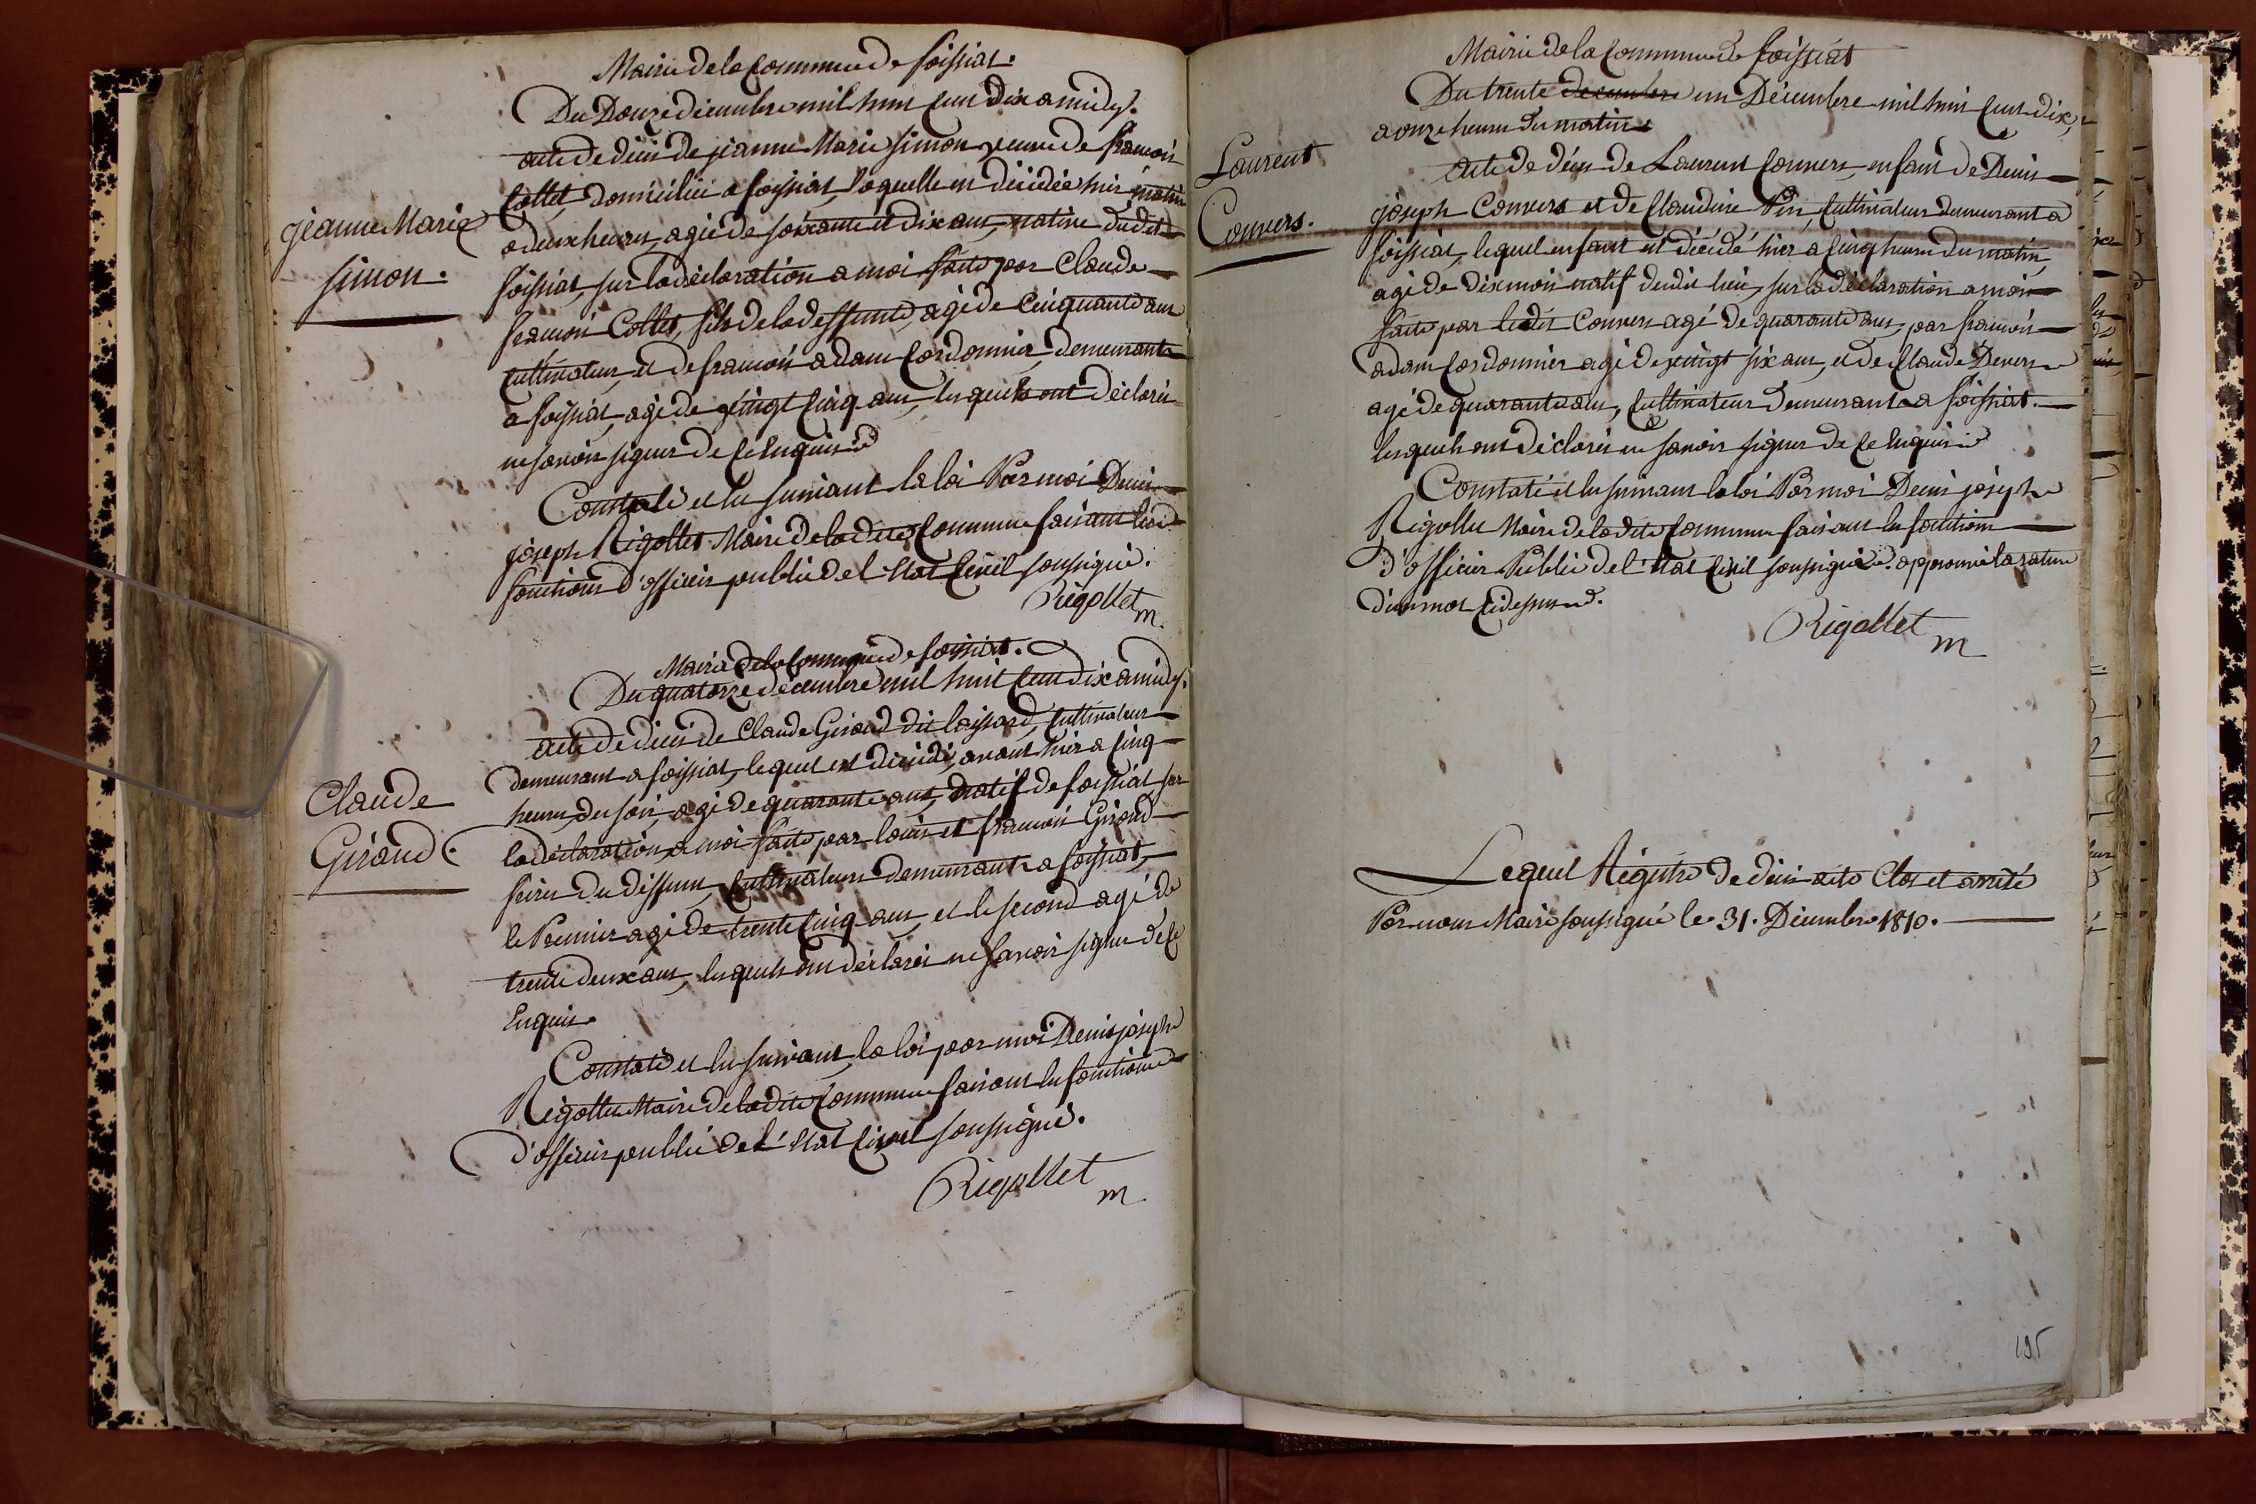 Mairie de la Commune de foissiat.
Du Douze décembre mil huit Cent dix a midy.
acte de décès de jeanne Marie simon veuve de francois
Collet, domiciliée a foissiat, laquelle est décédée hier matin
a deux heures, agée de soixante et dix ans, native dudit
foissiat, sur la déclaration a moi faite par Claude
francois Collet, fils de la deffunte, agé de Cinquante ans
Cultivateur, et de francois adam Cordonnier, demeurants
a foissiat, agé de vingt Cinq ans, lesquels ont déclaré
ne savoir signer de Ce Enquis
Constaté et lu suivant la loi Par moi Denis
joseph Rigollet Maire de ladite Commune faisant les
fonctions d'officier public de l'Etat Civil soussigné.
Rigollet
m.
jeanne Marie
simon.
Mairie de la Commune de foissiat.
Du quatorze décembre mil huit Cent dix a midy.
acte de décès de Claude Giroud dit , Cultivateur
demeurant a foissiat, lequel est décédé, avant hier a Cinq
heures du soir, agé de quarante ans, natif de foissiat, sur
la déclaration a moi faite par louis et francois Giroud
frères du deffunt, Cultivateurs demeurants a foissiat,
le Premier agé de trente Cinq ans, et le second agé de
trente deux ans, lesquels ont déclaré ne savoir signer de Ce
Enquis.
Constaté et lu suivant la loi par moi Denis joseph
Rigollet Maire de ladite Commune faisant les fonctions
d'officier public de l'Etat Civil soussigné.
Rigollet
m.
Claude
Giroud.
Mairie de la Commune de foissiat
Du trente decembre un Décembre mil huit Cent dix,
a onze heures du matin
acte de décès de Laurent Convers, enfant de Denis
joseph Convers et de Claudine Pin, Cultivateurs demeurants a
foissiat, lequel enfant est décédé hier a Cinq heures du matin,
agé de dix mois natif dudit lieu, sur la déclaration a moi
faite par ledit Convers agé de quarante ans, par francois
adam Cordonnier agé de vingt six ans, et de Claude
agé de quarante ans, Cultivateur demeurants a foissiat.
lesquels ont déclaré ne savoir signer de Ce Enquis
Constaté et lu suivant la loi Par moi Denis joseph
Rigollet Maire de ladite Commune faisant les fonctions
d'officier Public de l'Etat Civil soussigné. approuvé la rature
d'un mot Cidessus.
Rigollet
m
Laurent
Convers.
Lequel Régistre de décès a été Clos et arrêté
Par nous Maire soussigné le 31. Décembre 1810.
195